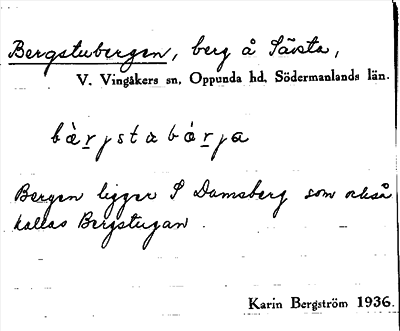 Bergstubergen, berg å Sävsta,
V. Vingåkers sn, Oppunda hd, Södermanlands län.
bàrjstabárja
Bergen ligger S Damsberg som också
kallas Bergstugan.
Karin Bergström 1936.